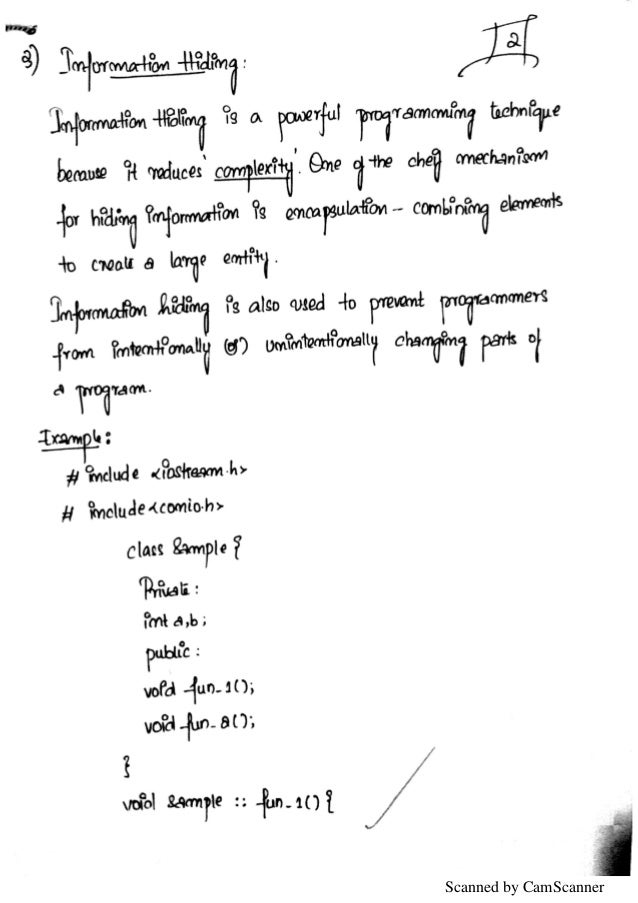 2
3) Information Hiding:
Information Hiding is a powerful programming technique
because it reduces 'complexity'. One of the chef mechanism
for hiding information is encapsulation – combining elements
to create a large entity.
Information hiding is also used to prevent programmers
from intentionally (or) unintentionally changing parts of
a program.
Example:
# include <iostream.h>
# include <conio.h>
class Sample {
Private :
int a,b ;
public :
void fun_1();
void fun_2();
}
void sample :: fun_1() {
Scanned by CamScanner